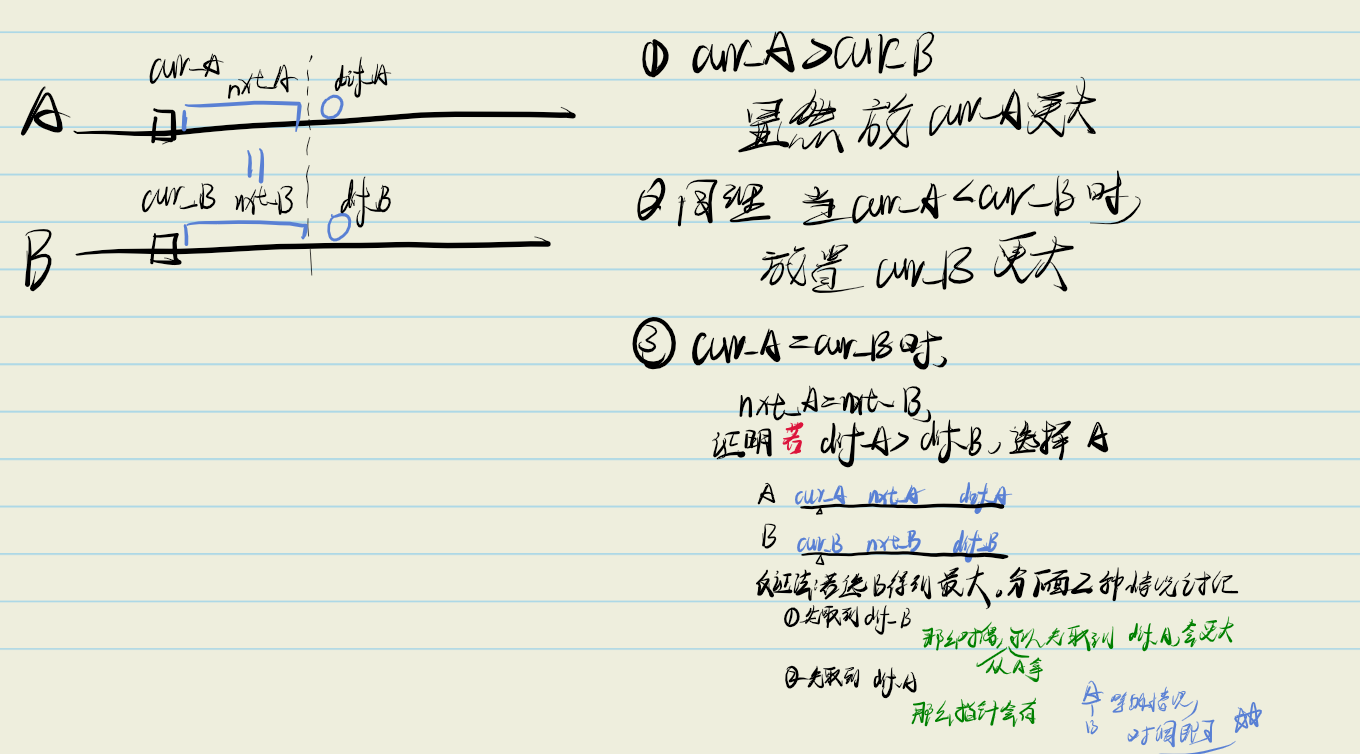 cur_A nxt_A dif_A
A
cur_B nxt_B dif_B
B
① cur_A>cur_B
显然 放 cur_A更大
② 同理 当 cur_A<cur_B 时,
放置 cur_B 更大
③ cur_A=cur_B 时,
nxt_A=nxt_B,
证明 若 dif_A> dif_B, 选择 A
A cur_A nxt_A dif_A
B cur_B nxt_B dif_B
反证法:若选B得到最大。分下面2种情况讨论
①先取到 dif_B
那么对偶,可以先取到 dif_A 会更大
从A拿
②先取到 dif_A
那么指针会有
A
B
情况,